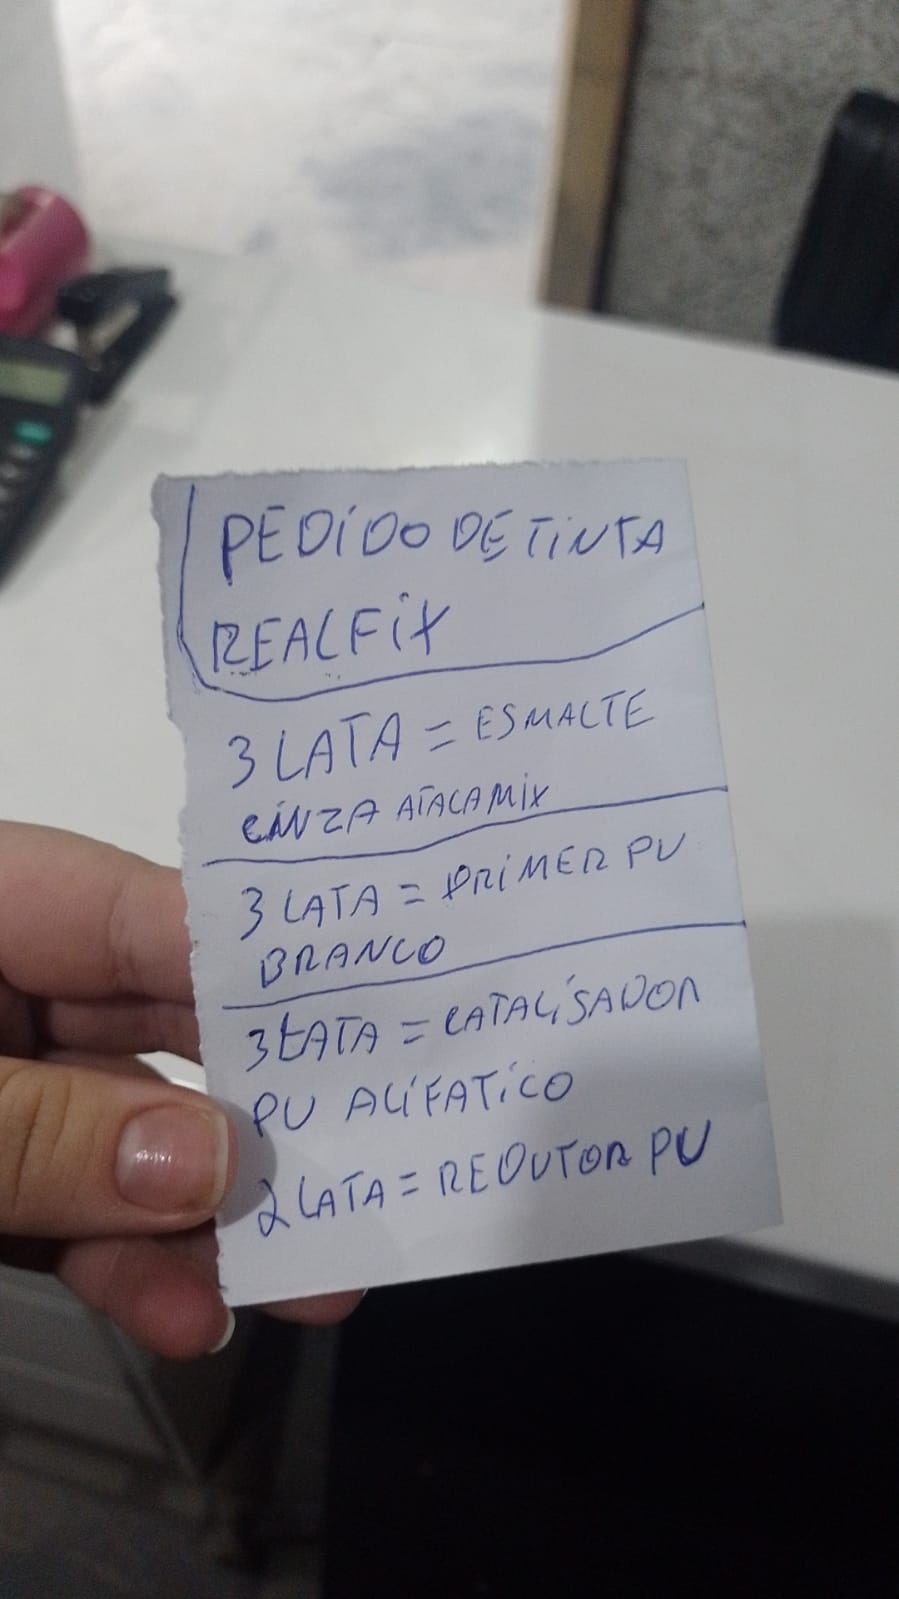 PEDIDO DE TINTA
REALFIX
3 LATA = ESMALTE
CINZA ATACAMIX
3 LATA = PRIMER PU
BRANCO
3 LATA = CATALISADOR
PU ALIFATICO
2 LATA = REDUTOR PU